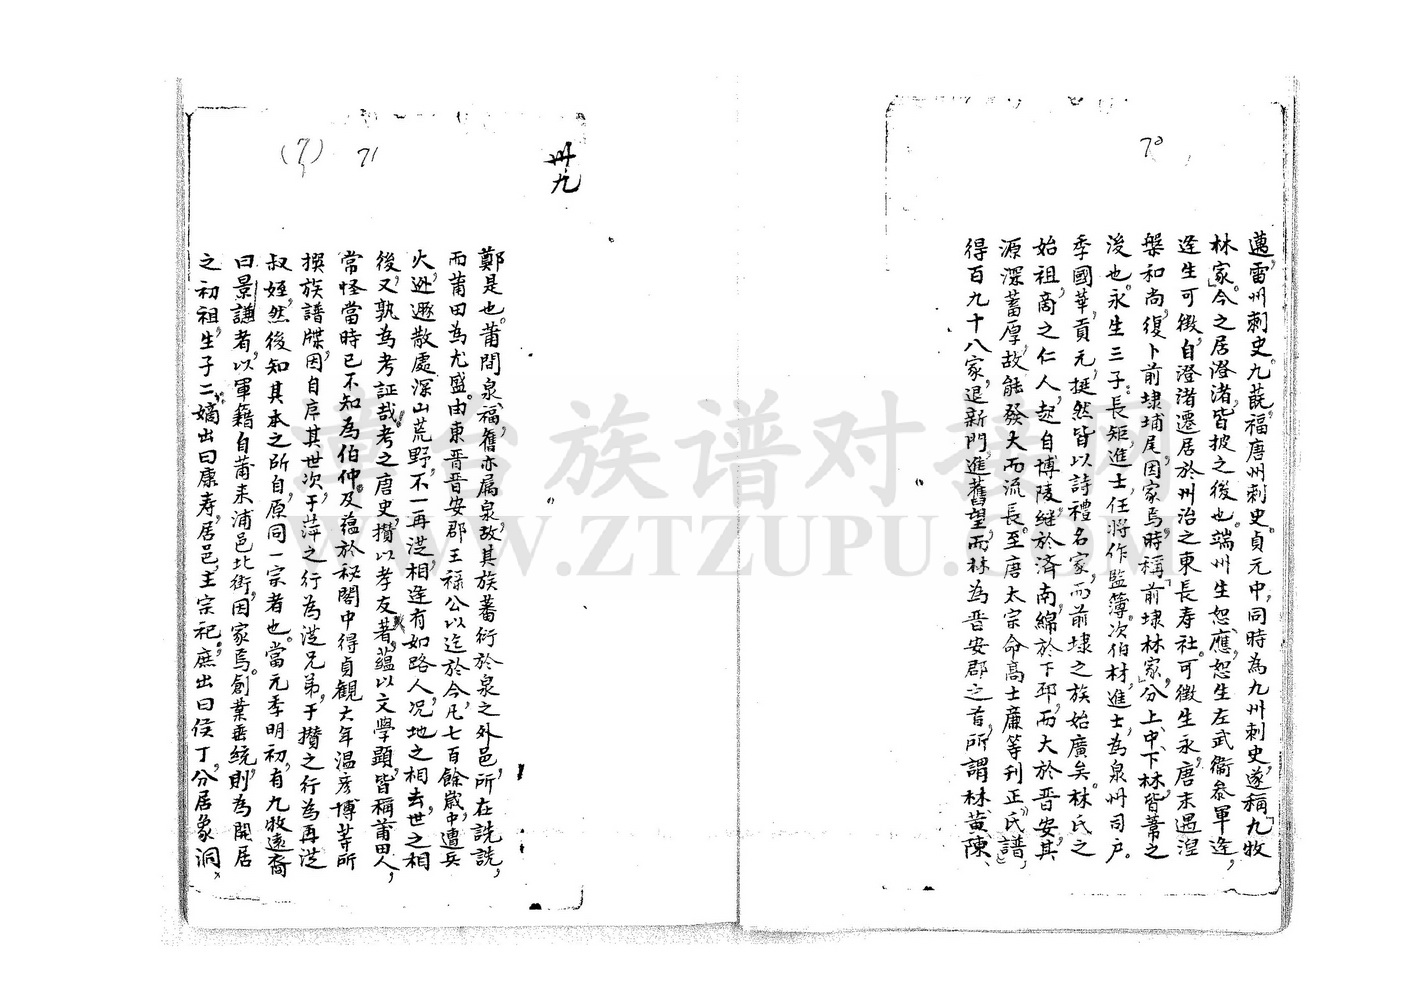 70
邁,雷州刺史。九蔇,福唐州刺史。貞元中,同時為九州刺史,遂稱「九牧
林家」。今之居澄渚,皆披之後也。端州生恕、應,恕生左武衞叅軍逵,
逵生可徵,自澄渚遷居於州治之東長寿社。可徵生永,唐末遇涅
槃和尚,復卜前埭埔尾,因家焉,時稱「前埭林家」,分上、中、下林,皆葦之
後也。永生三子:長矩,進士,任將作監簿。次伯材,進士,為泉州司户。
季國華,貢元,挺然皆以詩禮名家,而前埭之族始廣矣。林氏之
始祖,商之仁人,起自博陵,継於济南,綿於下邳,而大於晋安,其
源深蓄厚,故能發大而流長。至唐太宗命高士廉等刊正《氏譜》,
得百九十八家,退新門,進舊望,而林為晋安郡之首,所謂林、黄、陳、
卅九
71
(7)
鄭是也。莆間泉、福,舊亦属泉,故其族蕃衍於泉之外邑,所在詵詵,
而莆田為尤盛。由東晋晋安郡王禄公以迄於今,凡七百餘歲,中遭兵
火,迯遯散處深山荒野,不一再從相逢有如路人,况地之相去,世之相
後,又孰為考証哉。考之唐史,攢以孝友著,藴以文學顯,皆稱莆田人,
常怪當時已不知為伯仲。及蕴於秘閣中得貞観大年温彦博等所
撰族譜牒,因自序其世次,于萍之行為從兄弟,于攢之行為再從
叔姪,然後知其本之所自,原同一宗者也。當元季明初,有九牧遠裔
曰景謙者,以軍籍自莆来浦邑北街,因家焉。創業垂統,則為開居
之初祖,生子二:嫡出曰康寿,居邑,主宗祀。庶出曰伇丁,分居象洞、
臺台族谱对接网
WWW.ZTZUPU.COM